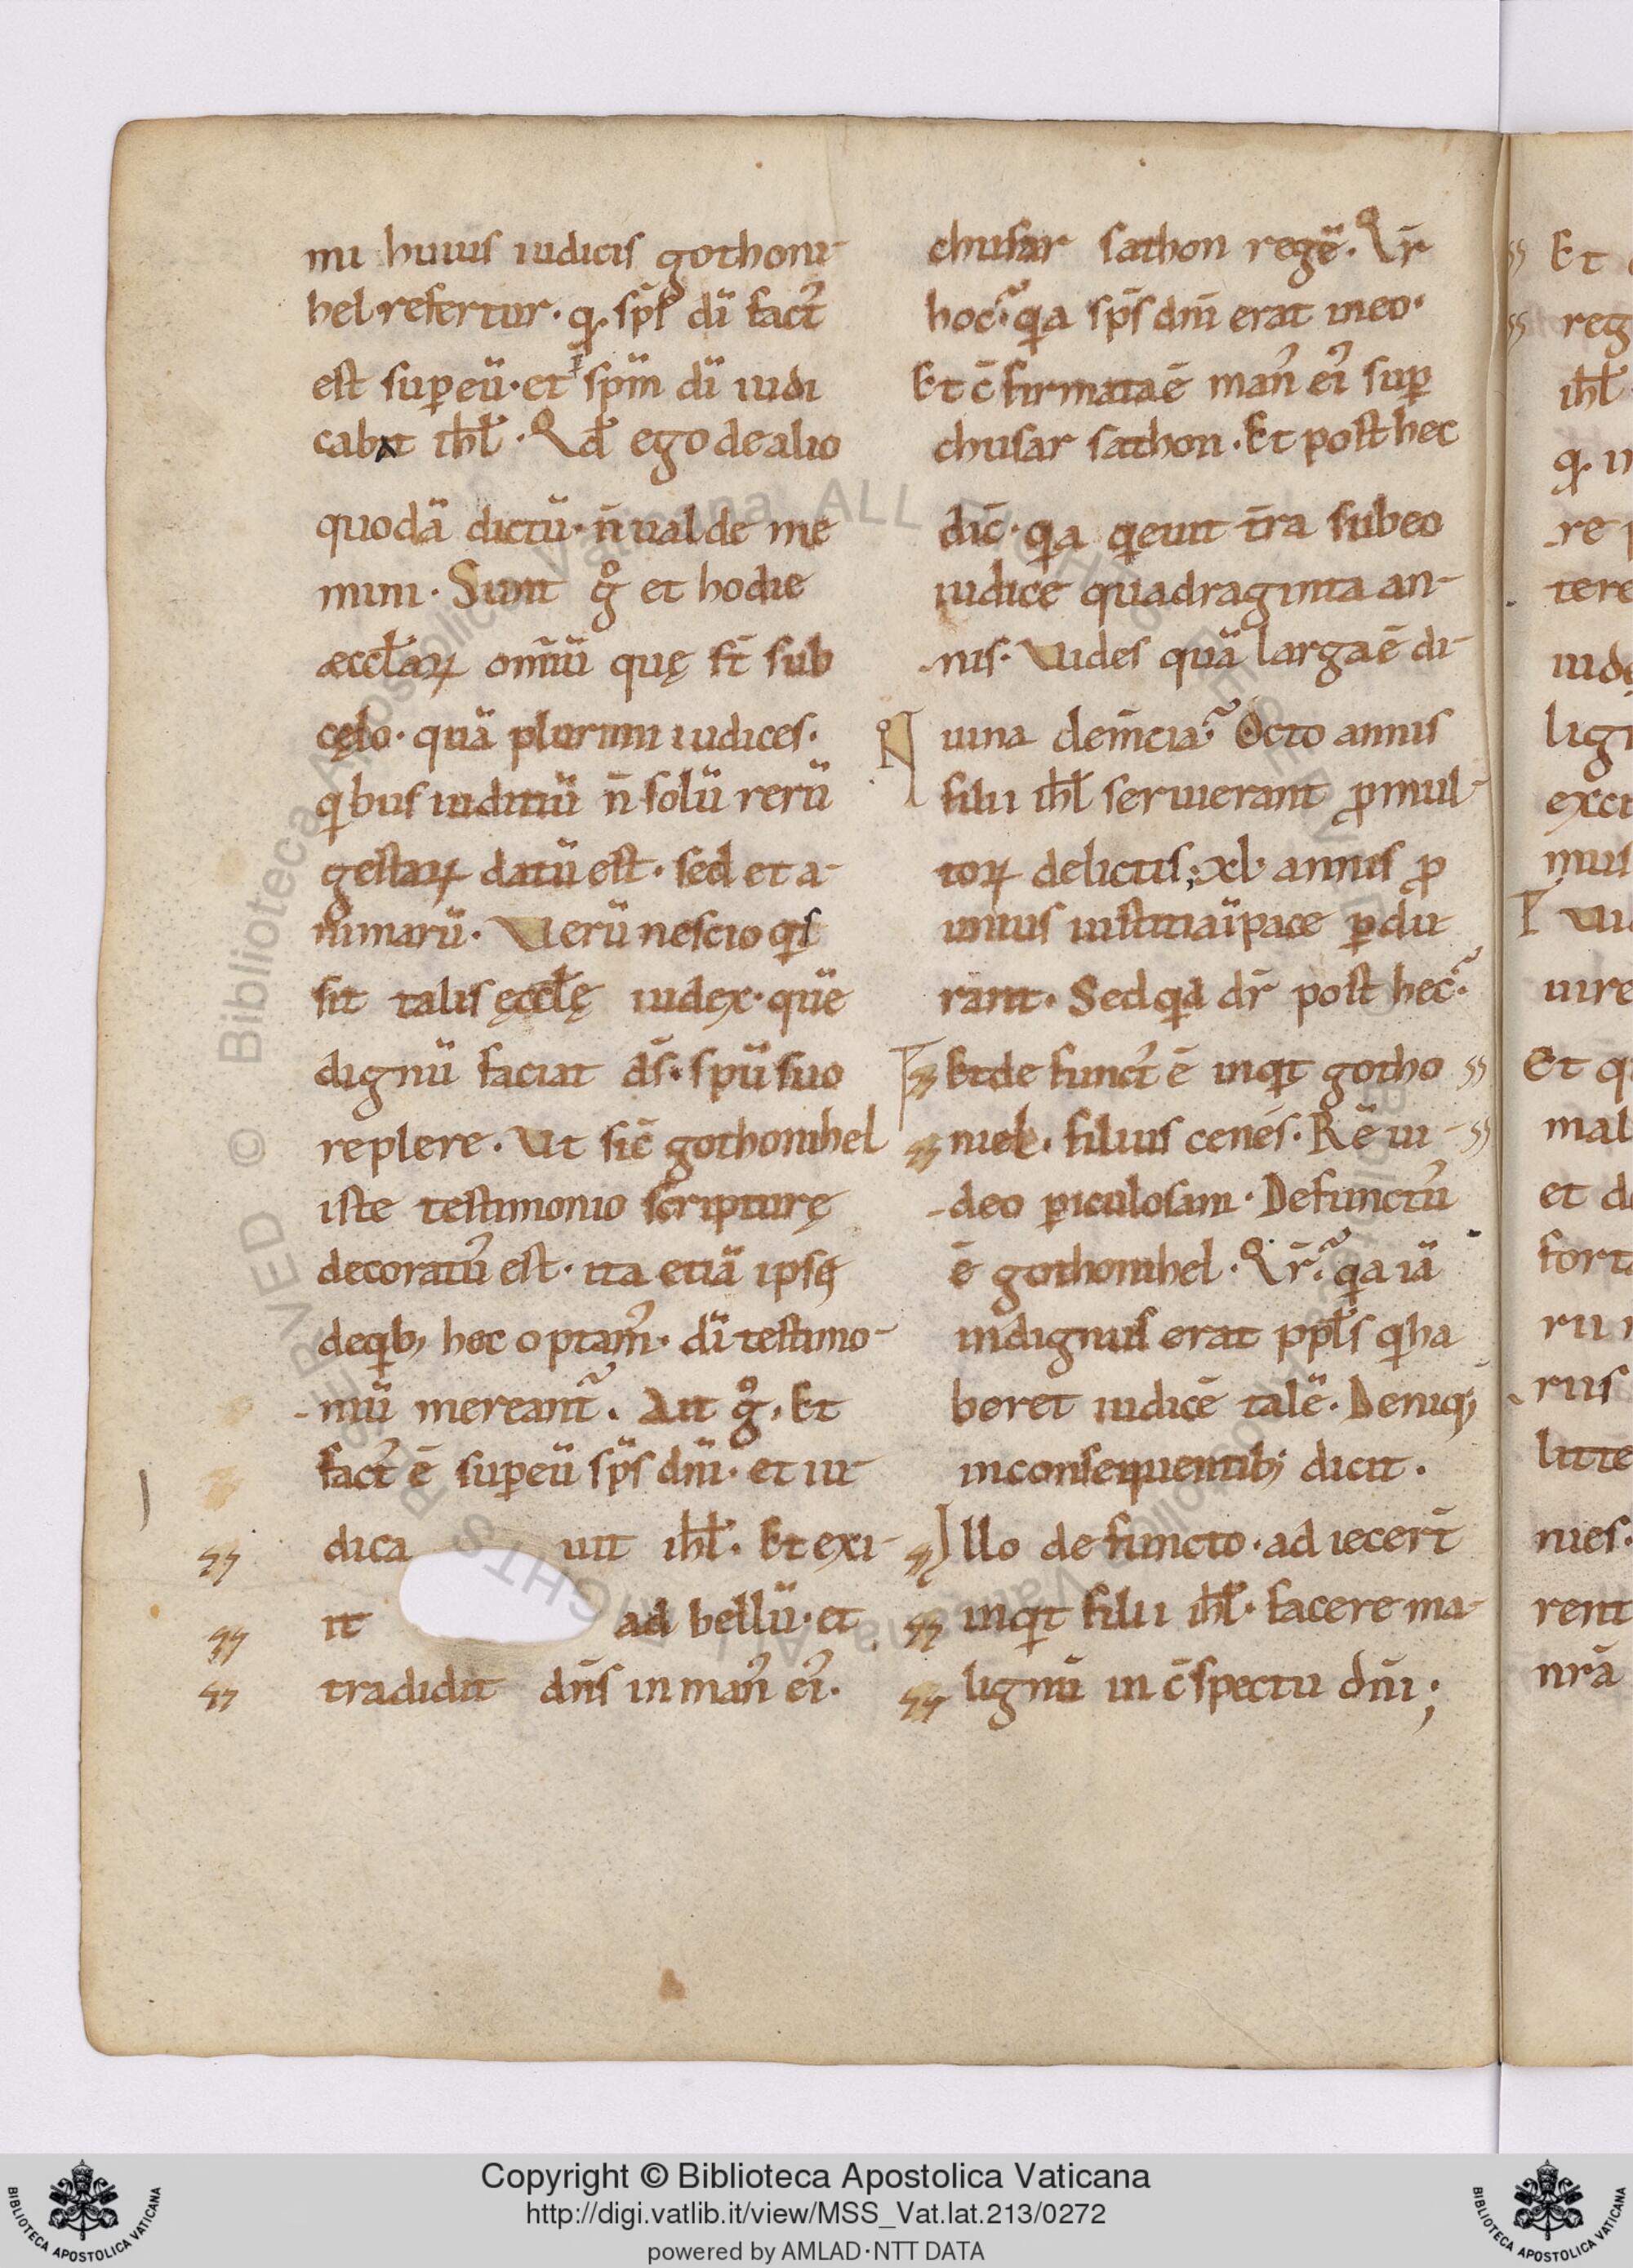 mi huius iudicis gothoni-
hel refertur · q̨ sp̄s dī fact᾽
est sup eū · et ī spm̄ dī iudi
cabit ihl̄ · Qd̄ ego de alio
quodā dictū · n̄ ualde me
mini · Sunt g̊ et hodie
æccl̄aꝝ om̄iū quę st̄ sub
cęlo · quā plurimi iudices ·
qbus iuditiū n̄ solū rerū
gestaꝝ datū est · sed et a-
nimarū · Verū nescio qis
sit talis ęccl̄ę iudex · quē
dignū faciat ds̄ · spū suo
replere · Ut sic̄ gothonihel
iste testimonio scripturę
decoratu᾽ est · ita etiā ipsę
deqb; hoc optam᾽ · dī testimo-
niū mereant᾽ · Ait g̊ · Et
fact᾽ ē sup eū sp̄s dn̄i · et iu-
dica uit ihl̄ · Et exi-
it ad bellū · et
tradidit dn̄s in man᾽ ei᾽ ·
chusar sathon regē · Qr̄
hoc · qa sp̄s dn̄i erat in eo ·
Et c̄firmata ē man᾽ ei᾽ sup
chusar sathon · Et post hec
dic̄ · qa qeuit tr̄a sub eo
iudice quadraginta an-
nis · Vides quā larga ē di-
uina clem̄cia · Octo annis
filii ihl̄ seruierant ꝓ mul-
toꝝ delictis ; xl · annis ꝓ
unius iustitia ī pace ꝑdu
rant · Sed qd dr̄ post hec ·
Et defunct᾽ ē inqt gotho
niel · filius cenes · Rē ui-
deo ꝑiculosam · Defunctu᾽
ē gothonihel · Qr̄ · qa iā
indignus erat ppl̄s q ha
beret iudicē talē · Deniq;
in consequentib; dicit ·
Illo defuncto · adiecert̄
inqt filii ihl̄ · facere ma-
lignū in c̄spectu dn̄i ;
Copyright © Biblioteca Apostolica Vaticana
http://digi.vatlib.it/view/MSS_Vat.lat.213/0272
powered by AMLAD·NTT DATA